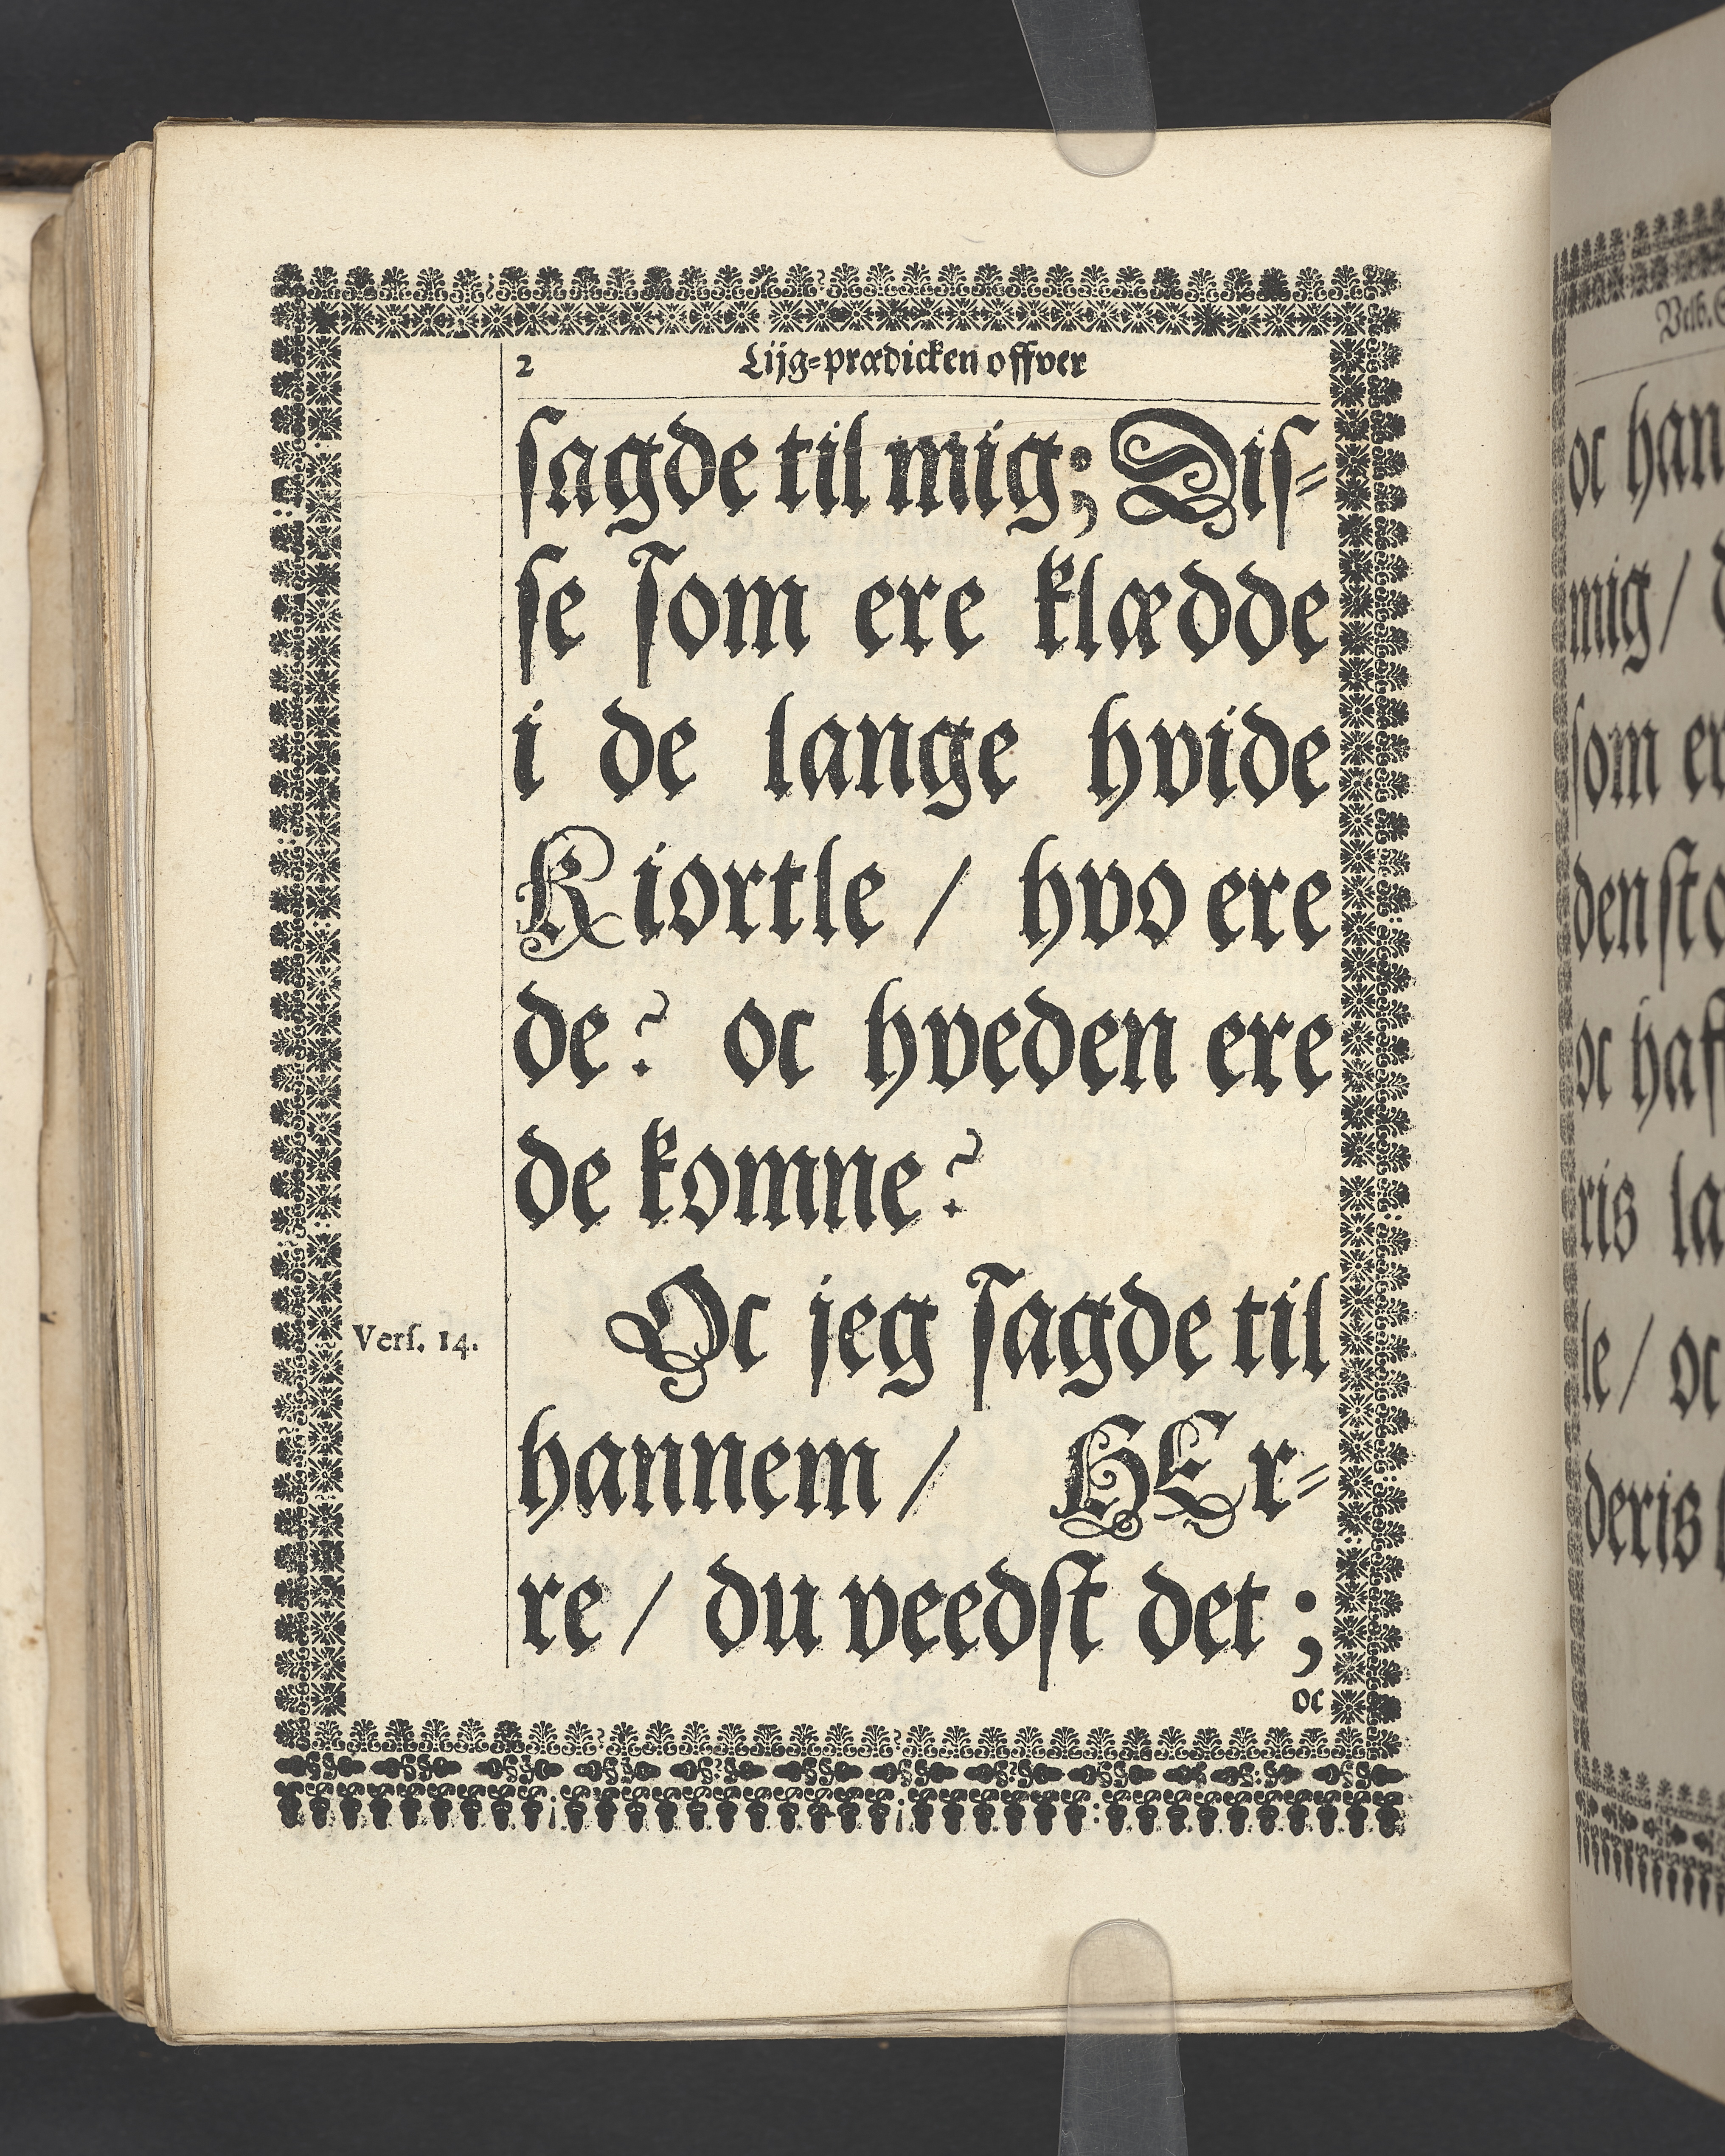 2 Lijg-prædicken offver
sagde til mig; Dis-
se som ere klædde
i de lange hvide
Kiortle / hvo ere
de? oc hveden ere
de komne?
Vers. 14.
Oc jeg sagde til
hannem / HEr-
re / du veedst det ;
oc
oc han
mig /
som er
oc haf
ris la
le / oc
deris